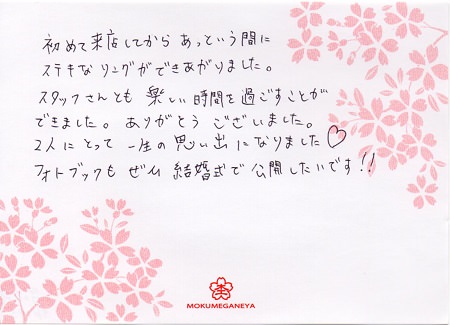 初めて来店してから あっという間に
ステキなリングができあがりました。
スタッフさんとも 楽しい時間を過ごすことが
できました。ありがとう ございました。
2人にとって 一生の思い出になりました♡
フォトブックも ぜひ 結婚式で公開したいです!!
MOKUMEGANEYA